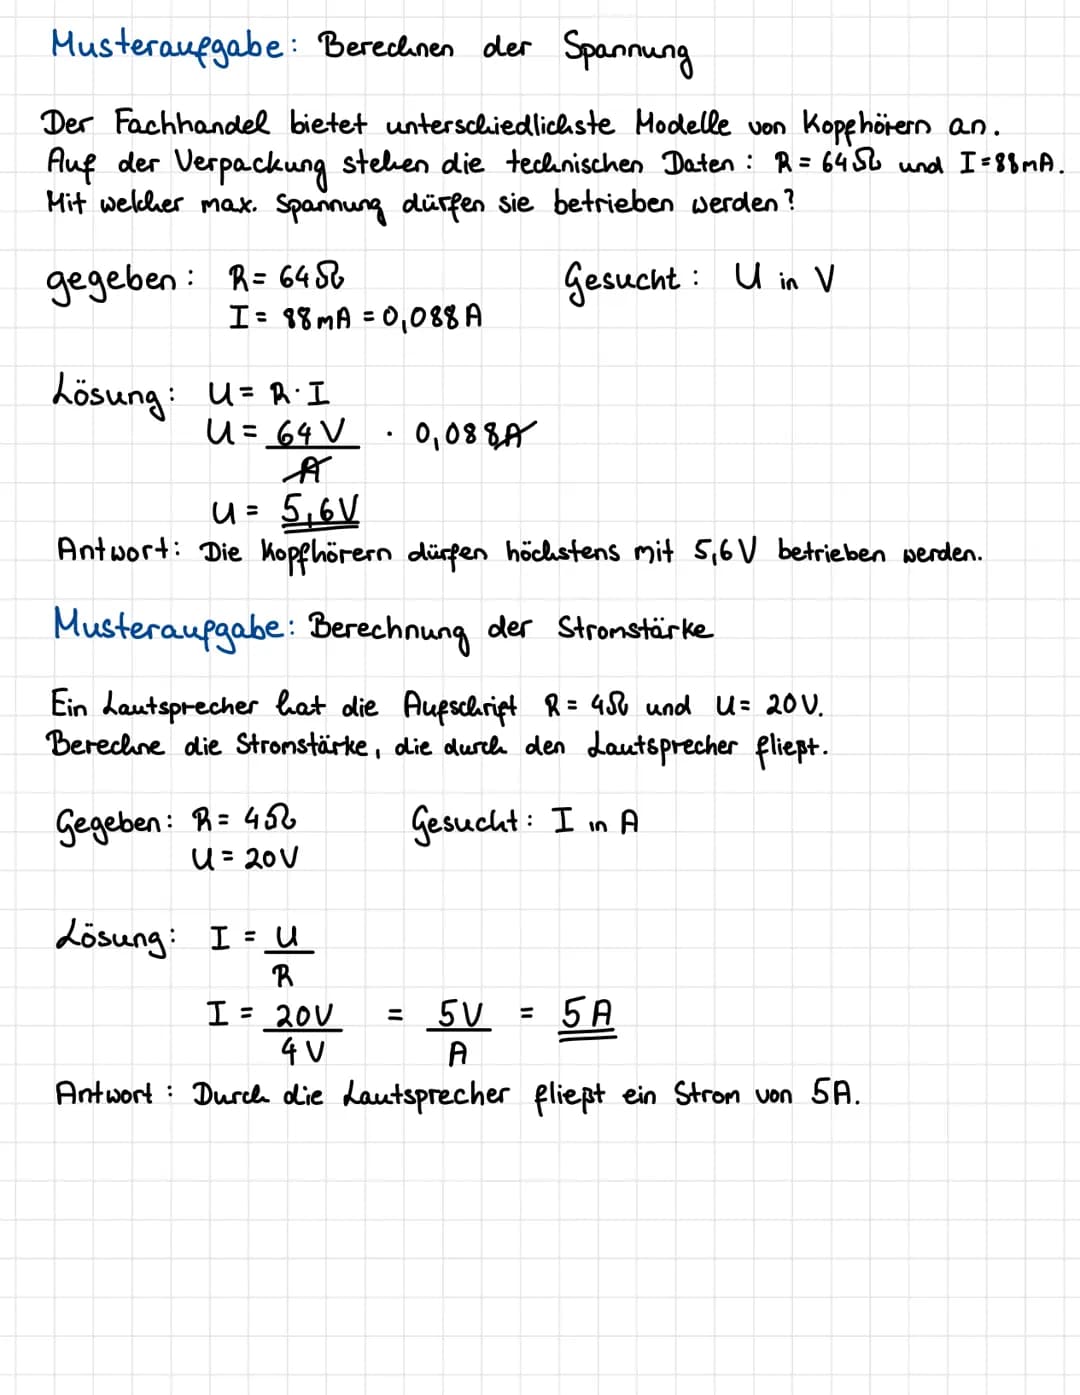 Musteraufgabe: Berechnen der Spannung
Der Fachhandel bietet unterschiedlichste Modelle von Kopfhörern an.
Auf der Verpackung stehen die technischen Daten: R = 64Ω und I = 88mA.
Mit welcher max. Spannung dürfen sie betrieben werden?
gegeben: R = 64Ω Gesucht: U in V
I = 88mA = 0,088A
Lösung: U = R · I
U = 64V · 0,088A
A
U = 5,6V
Antwort: Die Kopfhörern dürfen höchstens mit 5,6V betrieben werden.
Musteraufgabe: Berechnung der Stromstärke
Ein Lautsprecher hat die Aufschrift R = 4Ω und U = 20V.
Berechne die Stromstärke, die durch den Lautsprecher fließt.
Gegeben: R = 4Ω Gesucht: I in A
U = 20V
Lösung: I = U
R
I = 20V = 5V = 5A
4V A
Antwort: Durch die Lautsprecher fließt ein Strom von 5A.